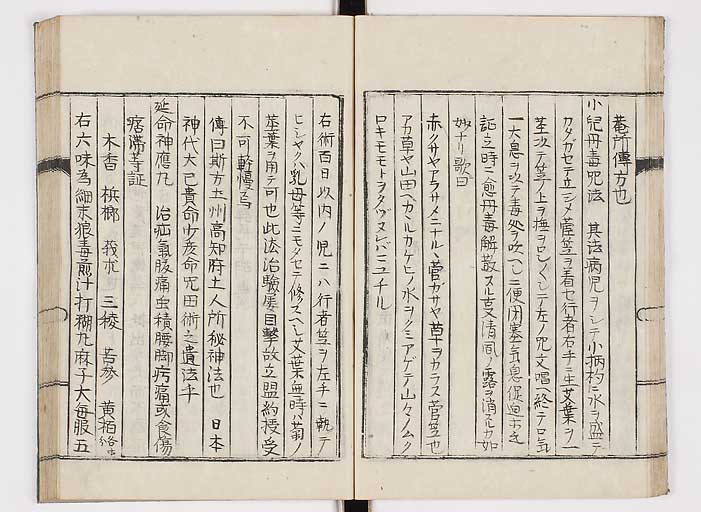 菴所傳方也
小兒丹毒咒法 其法病児ヲシテ小柄杓ニ水ヲ盛テ
カタガセテ立シメ菅笠ヲ着セ行者右手ニ生艾葉ヲ一
茎以テ笠ノ上ヲ撫ヲロシシテ左ノ咒文唱ヘ終テロ氣
一大息ヲ以テ毒処ヲ吹ヘシ二便閉塞氣息促迫
証之時ニ愈丹毒解散スル
妙ナリ歌曰
赤クサヤアラサメニナル菅ガサヤ草ヲカラス菅笠也
アカ草ヤ山田ヘカヽルカケヒノ水ヲクミアゲテ山々ノムク
ロキモモトヲ
右術百日以内ノ児ニハ行者笠ヲ左手ニ執テ
ヒシヤクハ乳母等ニモタセテ修スヘシ艾葉無時ハ菊ノ
茎葉ヲ用テ可也此法治驗屡目擊故立盟約授受
不可輕慢
傳曰斯方土州高知府士人所秘神法也 日本
神代大已貴命少彦命咒田術之遺法乎
延命神應丸 治疝氣腹痛虫積腰脚疼痛或食傷
痞滞等証
木香 梹榔 莪朮 三稜 苦參 黄栢各等分
右六味為細末狼毒煎汁打糊丸麻子大每服五